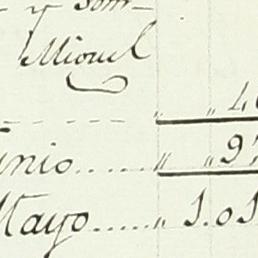 y Som-
Miguel
" " 40
unio...... " " 97
Mayo...... " 1.01